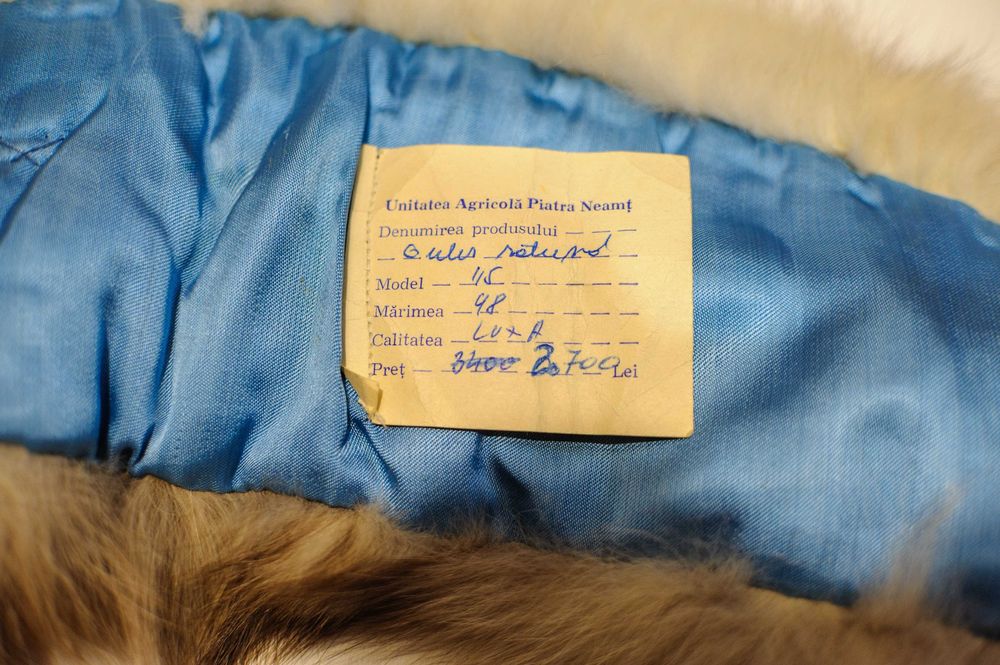 Unitatea Agricolă Piatra Neamț
Denumirea produsului
Guler rotund
Model 115
Mărimea 48
Calitatea LUX A
Preț 3400 2.700 Lei